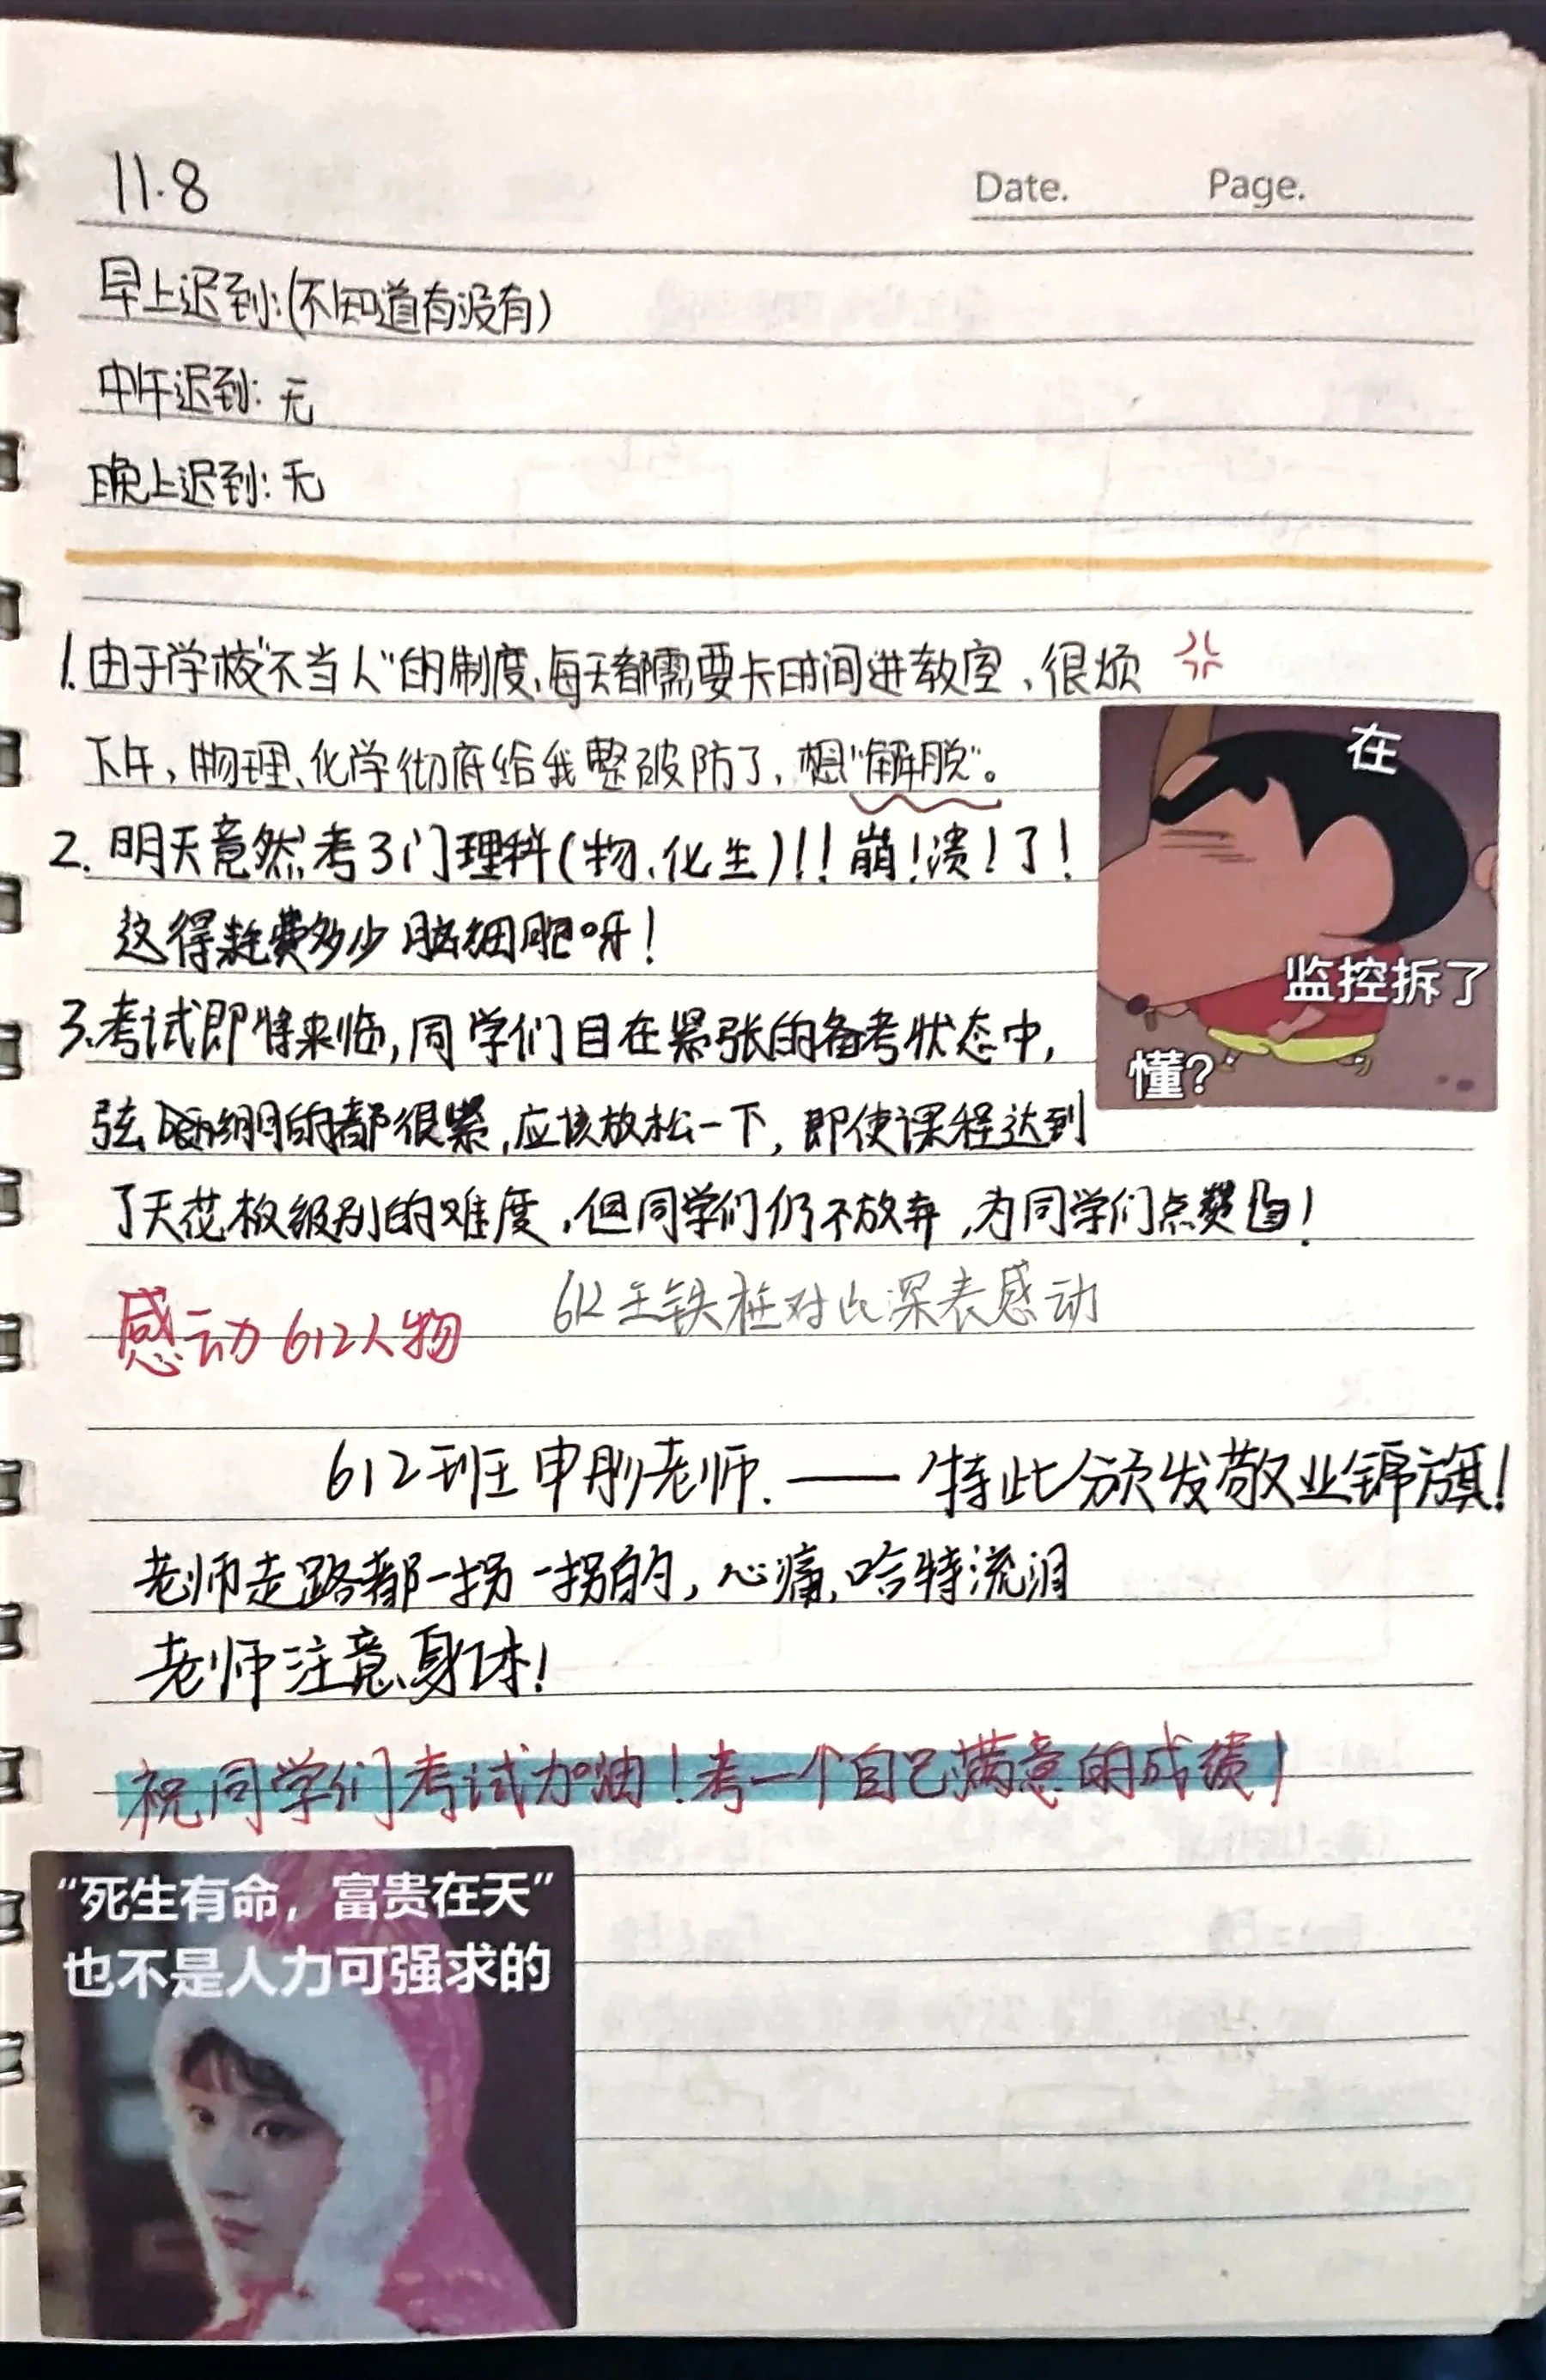 11.8
Date. Page.
早上迟到:(不知道有没有)
中午迟到: 无
晚上迟到: 无
1.由于学校“不当人”的制度,每天都需要卡时间进教室、很烦
下午,物理、化学彻底给我整破防了,想“解脱”。
2.明天竟然考3门理科(物、化生)!!崩!溃!了!
这得耗费多少脑细胞呀!
3.考试即将来临,同学们目在紧张的备考状态中,
弦 绷的都很紧,应该放松一下,即使课程达到
了天花板级别的难度,但同学们仍不放弃,为同学们点赞!
在
监控拆了
懂?
感动612人物
612王铁柱对此深表感动
612班申彤老师.——特此颁发敬业锦旗!
老师走路都一拐一拐的,心痛,哈特流泪
老师注意身体!
祝同学们考试加油!考一个自己满意的成绩!
“死生有命，富贵在天”
也不是人力可强求的